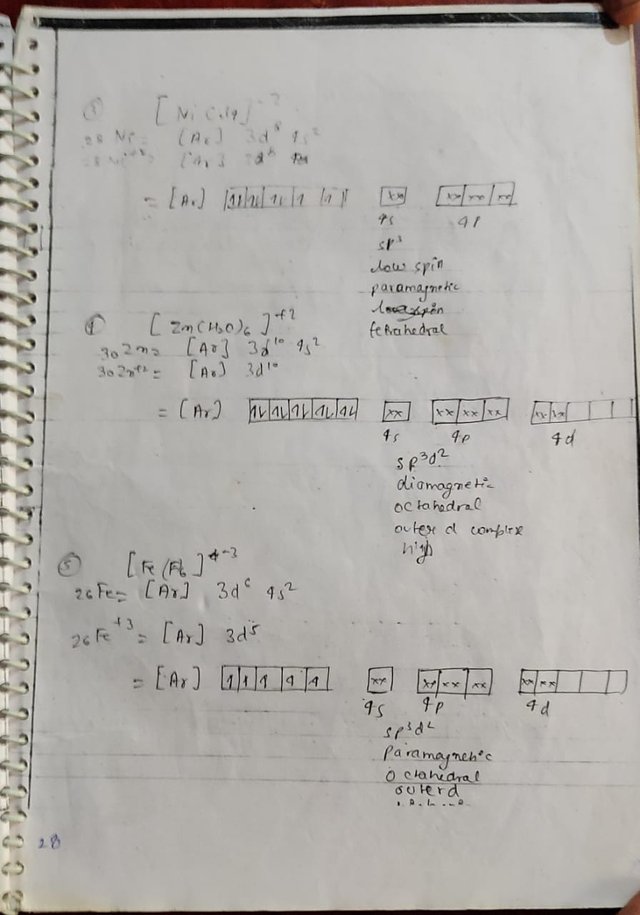 ③ [NiCl4]⁻²
28 Ni = [Ar] 3d⁸ 4s²
28 Ni⁺² = [Ar] 3d⁸
= [Ar] |1L|1L|1L|1|1| |xx| |xx|xx|xx|
4s 4p
sp³
low spin
paramagnetic
tetrahedral
④ [Zn(H2O)6]⁺²
30Zn = [Ar] 3d¹⁰ 4s²
30Zn⁺² = [Ar] 3d¹⁰
= [Ar] |1L|1L|1L|1L|1L| |xx| |xx|xx|xx| |xx|xx| | | |
4s 4p 4d
sp³d²
diamagnetic
octahedral
outer d complex
high
⑤ [Fe(F6]⁻³
26Fe = [Ar] 3d⁶ 4s²
26Fe⁺³ = [Ar] 3d⁵
= [Ar] |1|1|1|1|1| |xx| |xx|xx|xx| |xx|xx| | | |
4s 4p 4d
sp³d²
paramagnetic
octahedral
outer d
28